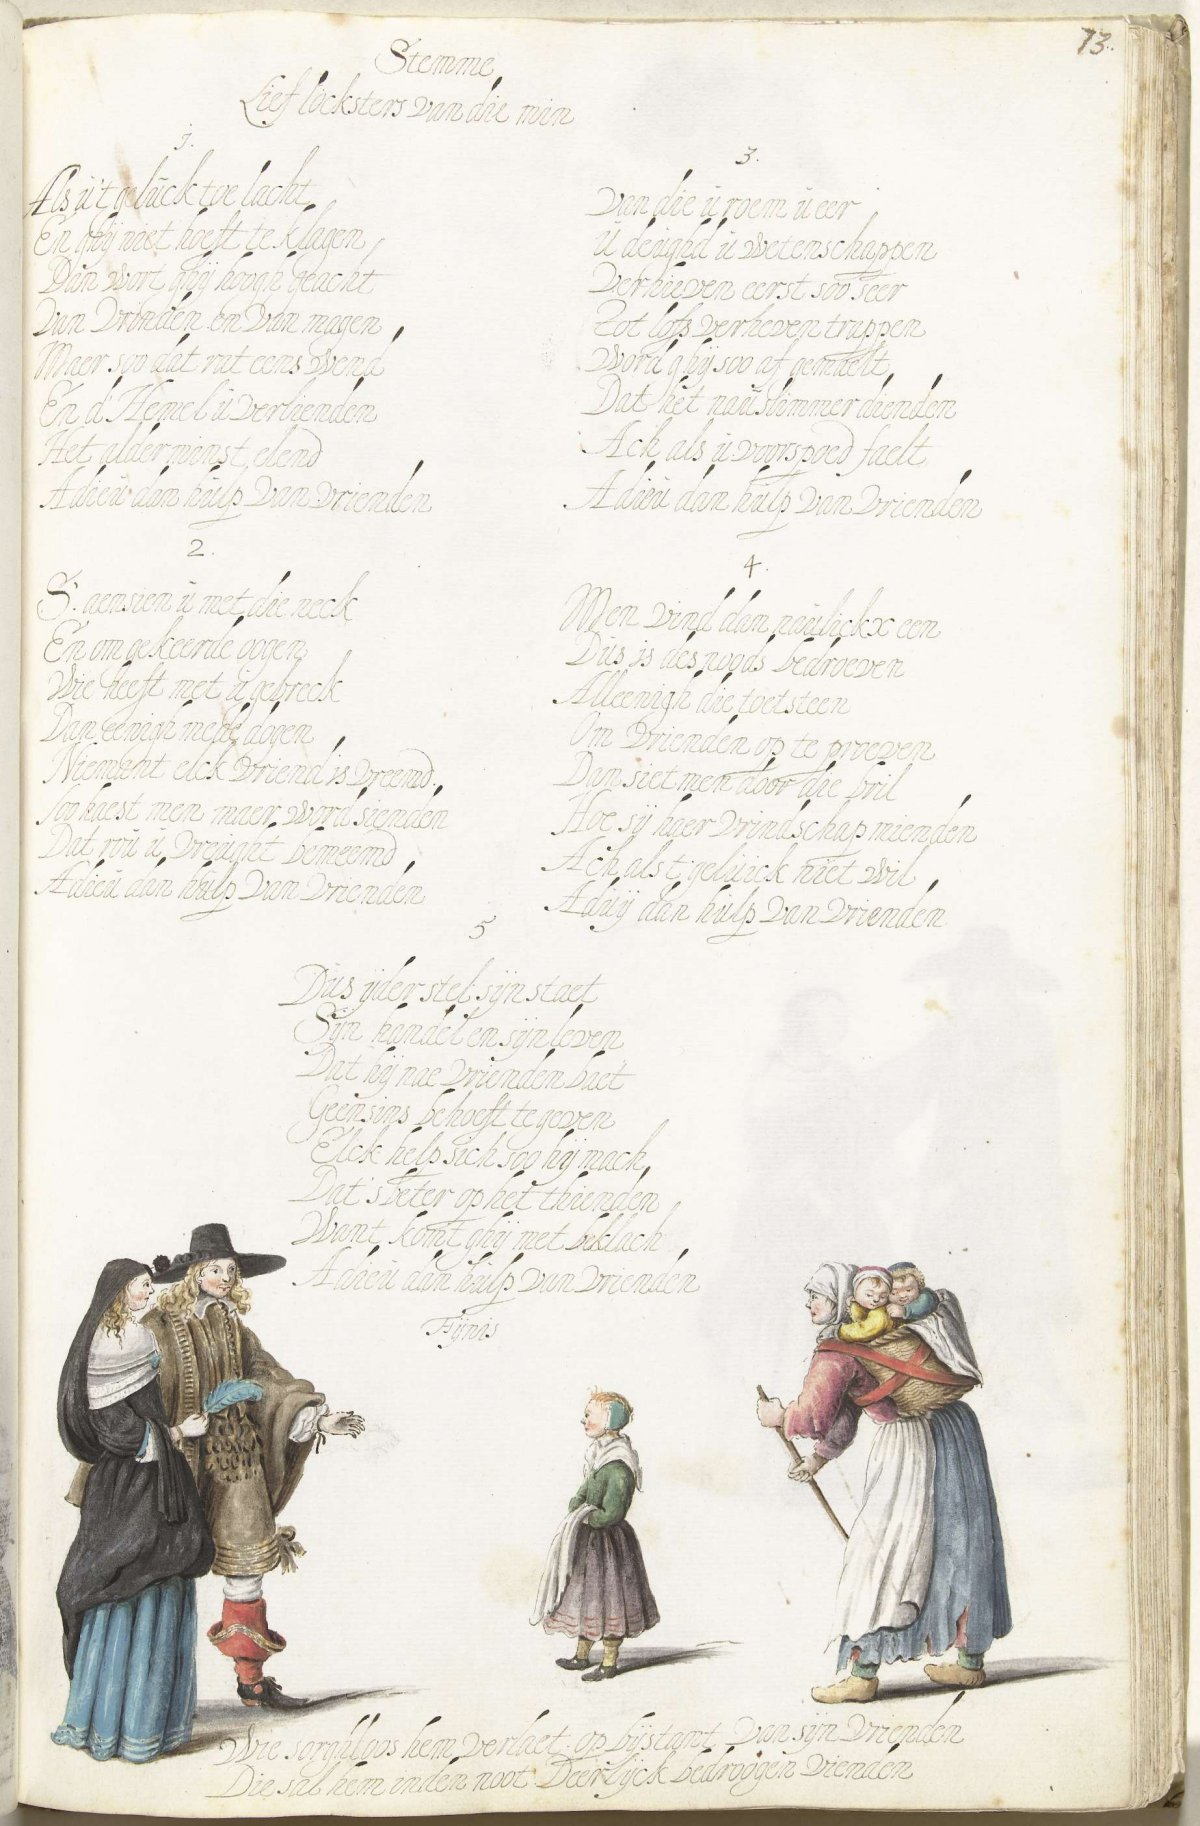 73.
Stemme
Lief locksters van die min
1.
Als ü't gelück toe lacht
En ghij niet hoeft te klagen
Dan wort ghij hoogh geacht
Van Vrinden en Van magen
Maer soo dat rat eens Wend
En d'Hemel ü verlienden
Het aldermünst elend
Adieü dan hülp Van Vrienden
2.
S' aensien ü met die neck
En om gekeerde oogen
Wie heeft met ü gebreck
Dan eenigh mede dogen
Niemant elck Vriend is Vreemd
Soo haest men maer Word sienden
Dat rou ü Vreught bemeemd
Adieü dan hülp Van Vrienden
3.
Van die ü roem ü eer
ü deüghd ü Wetenschappen
Verheeven eerst soo seer
Tot lofs verheven trappen
Word ghij soo af gemaelt
Dat het naü slimmer dienden
Ach als ü voorspoed faelt
Adieü dan hülp Van Vrienden
4.
Men vind dan naülickx een
Düs is des noods bedroeven
Alleenigh die toetsteen
Om Vrienden op te proeven
Dan siet men door die bril
Hoe sij haer Vrindschap mienden
Ach als t gelück niet Wil
Adüij dan hülp Van Vrienden
5
Düs ijder stel sijn staet
Sijn handel en sijn leven
Dat hij nae Vrienden baet
Geensins behoeft te geven
Elck help sich soo hij mach
Dat's beter op het thienden
Want komt ghij met beklach
Adieü dan hülp Van Vrienden
Fijnis
Wie sorghloos hem verlaet op bijstant Van sijn Vrienden
Die sal hem inden noot Deerlijck bedroogen Vienden